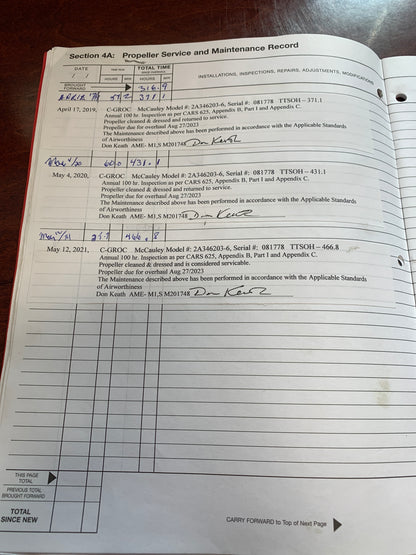 Section 4A: Propeller Service and Maintenance Record
DATE
YEAR RUN
TOTAL TIME
SINCE OVERHAUL
INSTALLATIONS, INSPECTIONS, REPAIRS, ADJUSTMENTS, MODIFICATIONS
HOURS MIN HOURS MIN
BROUGHT FORWARD 316.9
2 371 1
April 17, 2019, C-GROC McCauley Model #: 2A346203-6, Serial #: 081778 TTSOH – 371.1
Annual 100 hr. Inspection as per CARS 625, Appendix B, Part I and Appendix C.
Propeller cleaned & dressed and returned to service.
Propeller due for overhaul Aug 27/2023
The Maintenance described above has been performed in accordance with the Applicable Standards
of Airworthiness
Don Keath AME- M1,S M201748 Don Keath
60.0 431. 1
May 4, 2020, C-GROC McCauley Model #: 2A346203-6, Serial #: 081778 TTSOH – 431.1
Annual 100 hr. Inspection as per CARS 625, Appendix B, Part I and Appendix C.
Propeller cleaned & dressed and returned to service.
Propeller due for overhaul Aug 27/2023
The Maintenance described above has been performed in accordance with the Applicable Standards
of Airworthiness
Don Keath AME- M1,S M201748 Don Keath
466. 8
May 12, 2021, C-GROC McCauley Model #: 2A346203-6, Serial #: 081778 TTSOH – 466.8
Annual 100 hr. Inspection as per CARS 625, Appendix B, Part I and Appendix C.
Propeller cleaned & dressed and is considered servicable.
Propeller due for overhaul Aug 27/2023
The Maintenance described above has been performed in accordance with the Applicable Standards
of Airworthiness
Don Keath AME- M1,S M201748 Don Keath
THIS PAGE TOTAL
PREVIOUS TOTAL BROUGHT FORWARD
TOTAL SINCE NEW
CARRY FORWARD to Top of Next Page